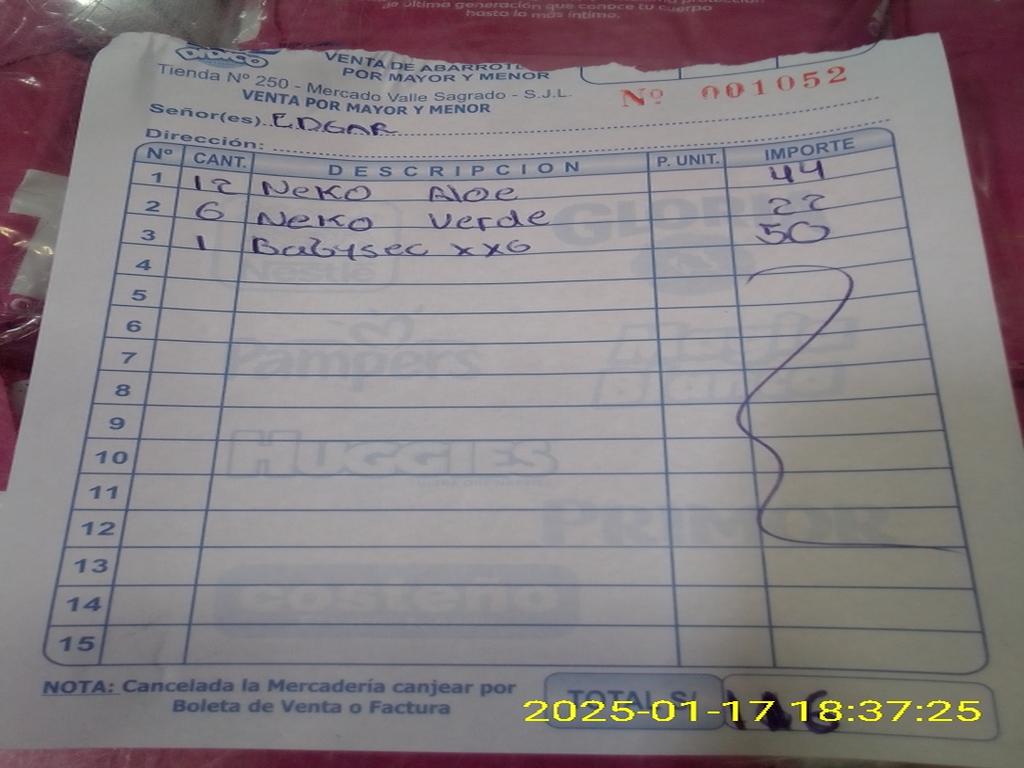 de última generación que conoce tu cuerpo
hasta lo más íntimo.
VENTA DE ABARROTE
POR MAYOR Y MENOR
Tienda Nº 250 - Mercado Valle Sagrado - S.J.L.
VENTA POR MAYOR Y MENOR
Nº 001052
Señor(es) EDGAR
Dirección:
Nº CANT. DESCRIPCION P. UNIT. IMPORTE
1 12 Neko Aloe 44
2 6 Neko Verde 22
3 1 Babysec xxG 50
4
5
6
7
8
9
10
11
12
13
14
15
Nestlé
GLORIA
Pampers
HUGGIES
PRIMOR
costeño
NOTA: Cancelada la Mercadería canjear por
Boleta de Venta o Factura
TOTAL S/.
2025-01-17 18:37:25